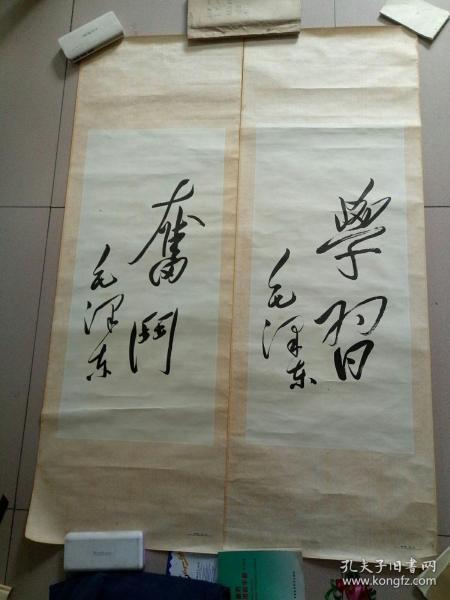 學習
毛泽东
奮鬥
毛泽东
孔夫子旧书网
www.kongfz.com